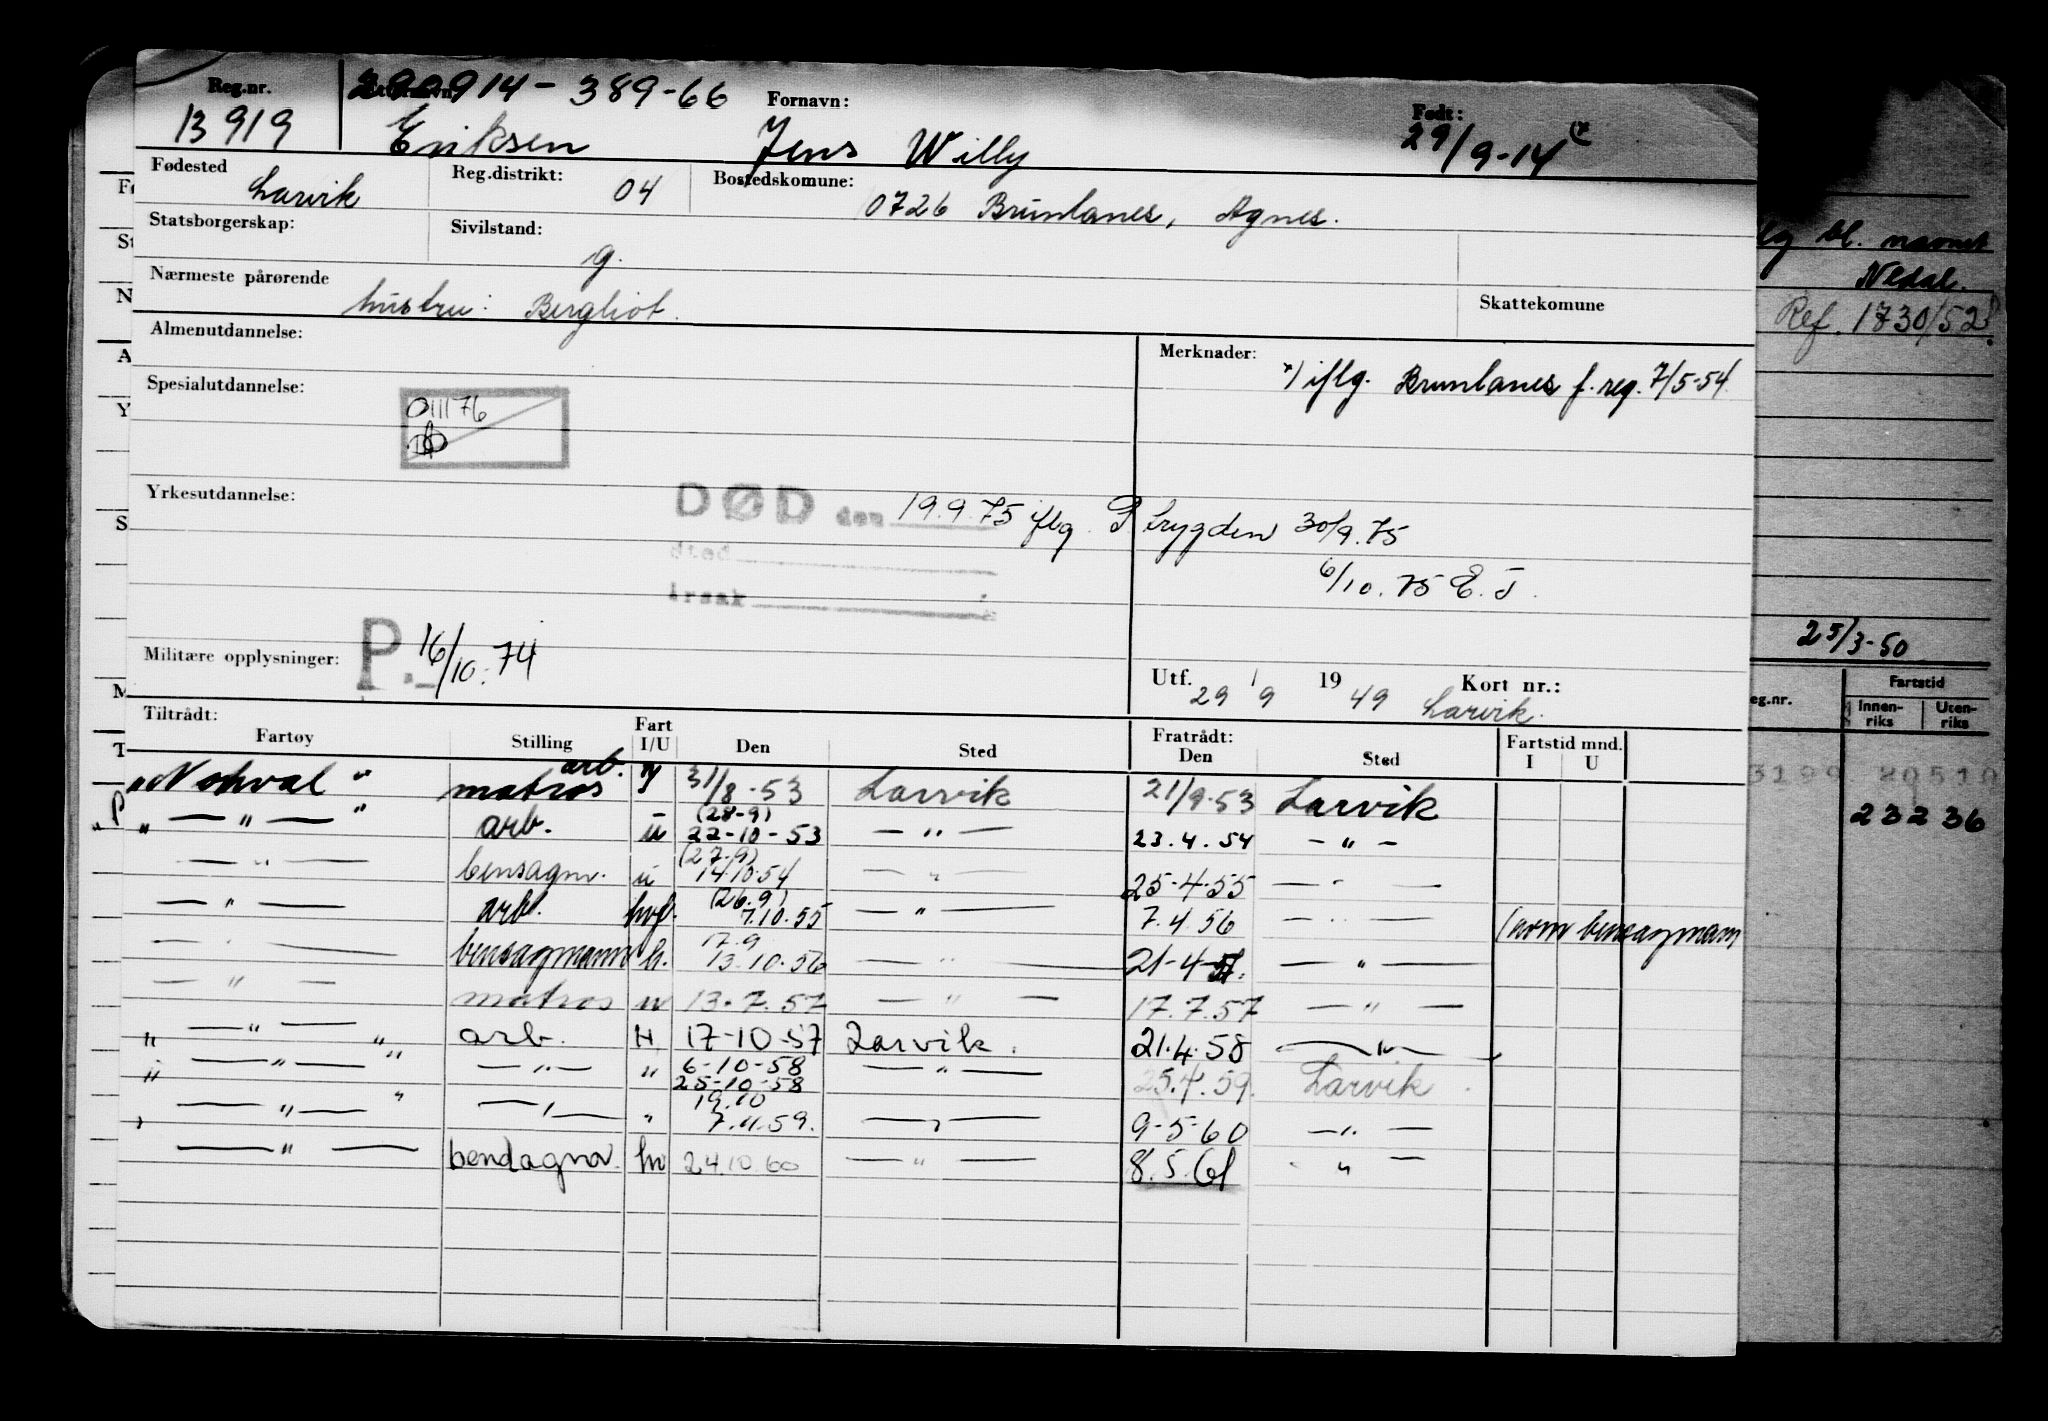 Reg.nr. 290914-389-66 Fornavn: Født:
13919 Eriksen Jens Willy 29/9-14 (*
Fødested Larvik Reg.distrikt: 04 Bostedskomune: 0726 Brunlanes, Agnes.
Statsborgerskap: Sivilstand: g.
Nærmeste pårørende hustru: Bergliot. Skattekomune
Almenutdannelse: Merknader: *) iflg. Brunlanes f.reg. 7/5-54.
Spesialutdannelse: 011176
Yrkesutdannelse: DØD den 19.9.75 iflg. P trygden 30/9.75
sted
årsak 6/10.75 E.J.
Militære opplysninger: P. 16/10.74
Utf. 29/9 1949 Larvik. Kort nr.:
Tiltrådt: Fratrådt:
Fartøy Stilling Fart I/U Den Sted Den Sted Fartstid mnd. I U
"Norhval" matros arb. 31/8-53 Larvik 21/9-53 Larvik
" — " — " arb. u (28-9) 22-10-53 — " — 23.4.54 — " —
— " — bensagm. u (27-9) 14.10.54 — " — 25-4-55 — " —
— " — arb. hvf. (26.9) 7.10.55 — " — 7.4.56 — " — (som bensagmann
— " — bensagmann h. 17.9 13.10.56 — " — 21-4-57. — " —
— " — matros u 13.7.57 — " — 17.7.57 — " —
" — " — " arb. H 17-10-57 Larvik. 21.4.58 — " —
" — " — " — " — " 6-10-58 25-10-58 — " — 25.4.59. Larvik.
" — " — " — " — " 19.10 7.11.59. — " — 9-5-60 — " —
— " — hv 24.10.60 — " — 8.5.61 " —
bl. navnet
Nedal.
Ref. 1730/52
25/3-50
eg.nr. Fartstid
Innenriks Utenriks
23236